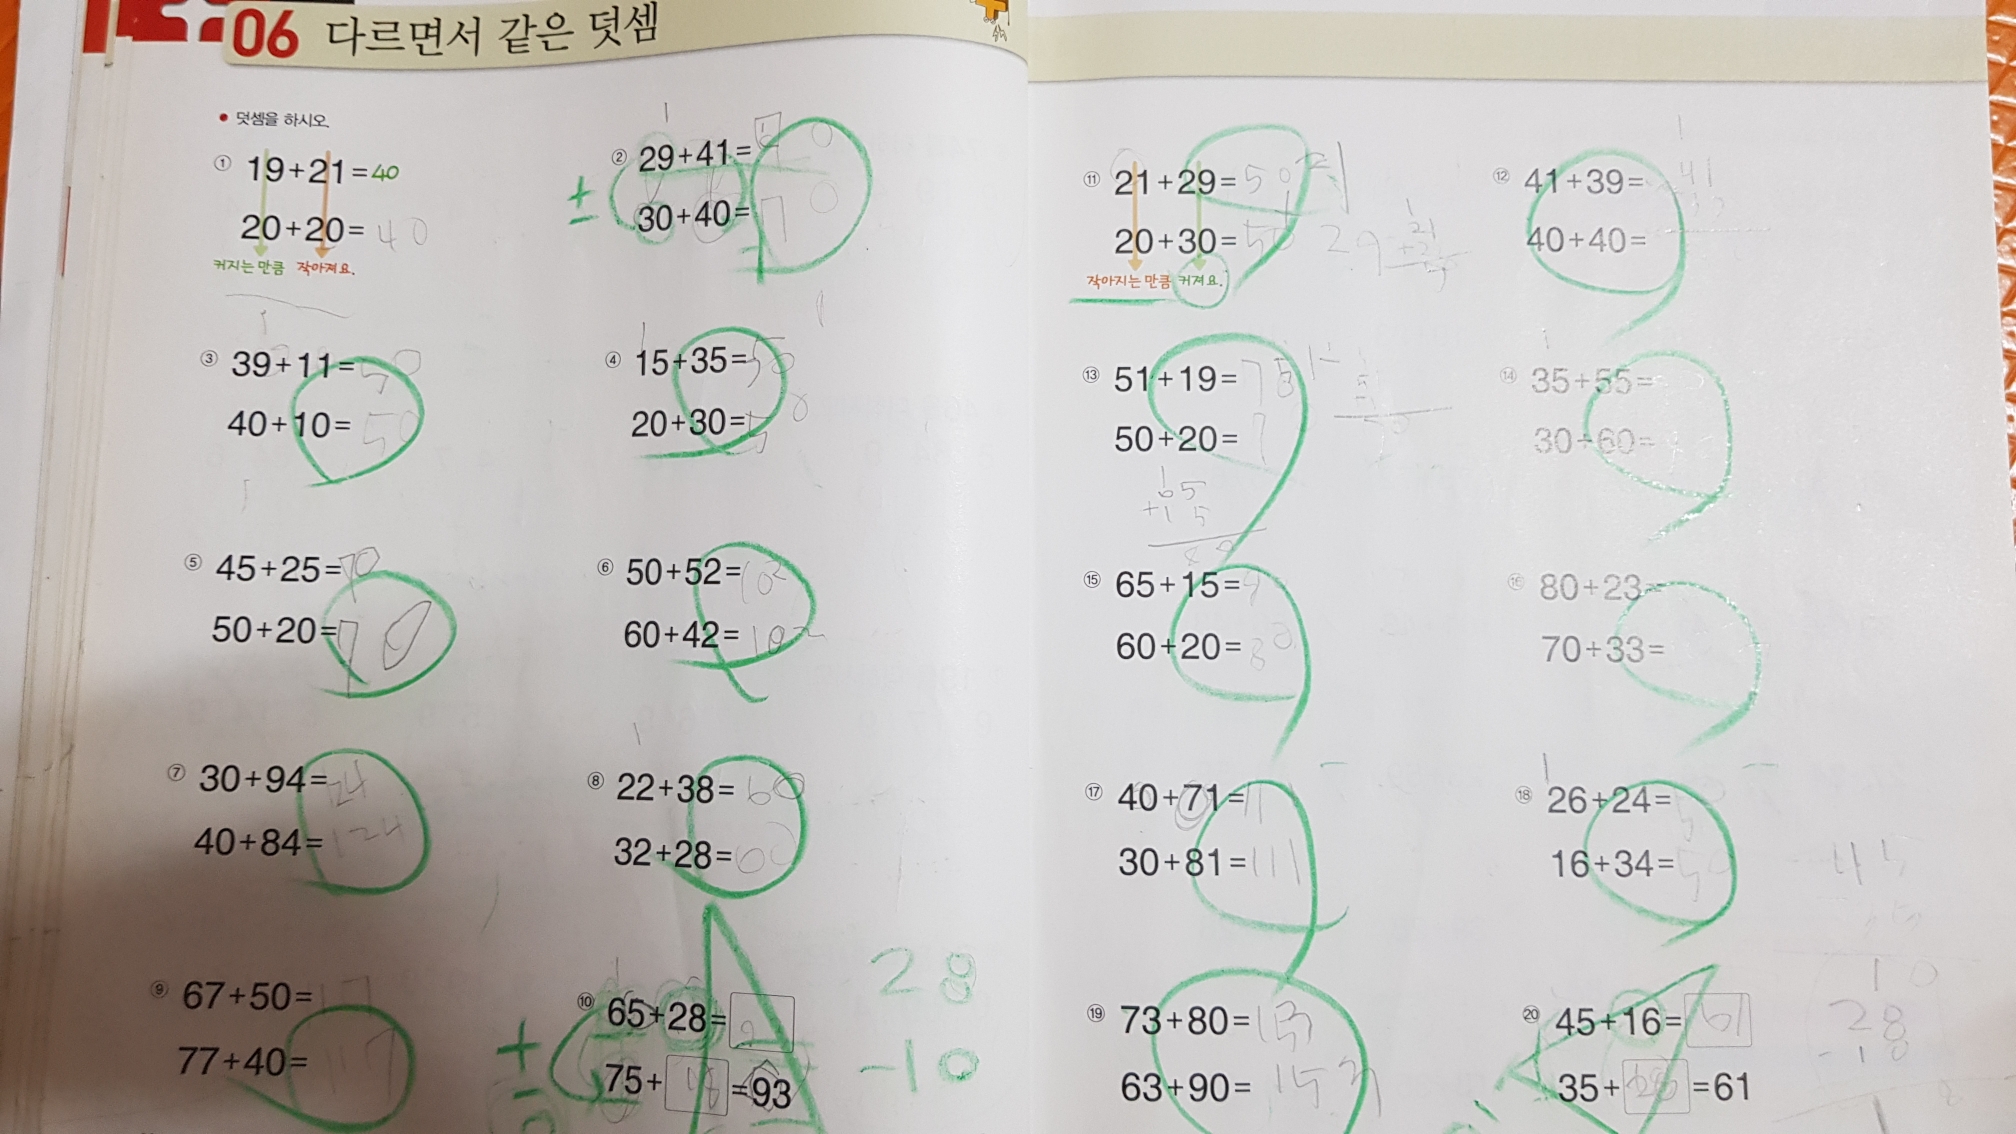 06 다르면서 같은 덧셈
• 덧셈을 하시오.
① 19+21=40
20+20= 40
커지는 만큼 작아져요.
② 29+41=
30+40= 70
③ 39+11= 50
40+10= 50
④ 15+35= 50
20+30= 50
⑤ 45+25= 70
50+20= 70
⑥ 50+52= 102
60+42= 102
⑦ 30+94= 124
40+84= 124
⑧ 22+38= 60
32+28= 60
⑨ 67+50= 117
77+40= 117
⑩ 65+28=
75+ 18 =93
28
-10
⑪ 21+29= 50
20+30= 50
작아지는 만큼 커져요.
⑫ 41+39=
40+40=
⑬ 51+19=
50+20= 7
65
+15
80
⑭ 35+55=
30+60=
⑮ 65+15=
60+20= 80
⑯ 80+23=
70+33=
⑰ 40+71= 111
30+81= 111
⑱ 26+24=
16+34= 50
⑲ 73+80= 153
63+90= 153
⑳ 45+16= 61
35+ =61
45
10
28
-10